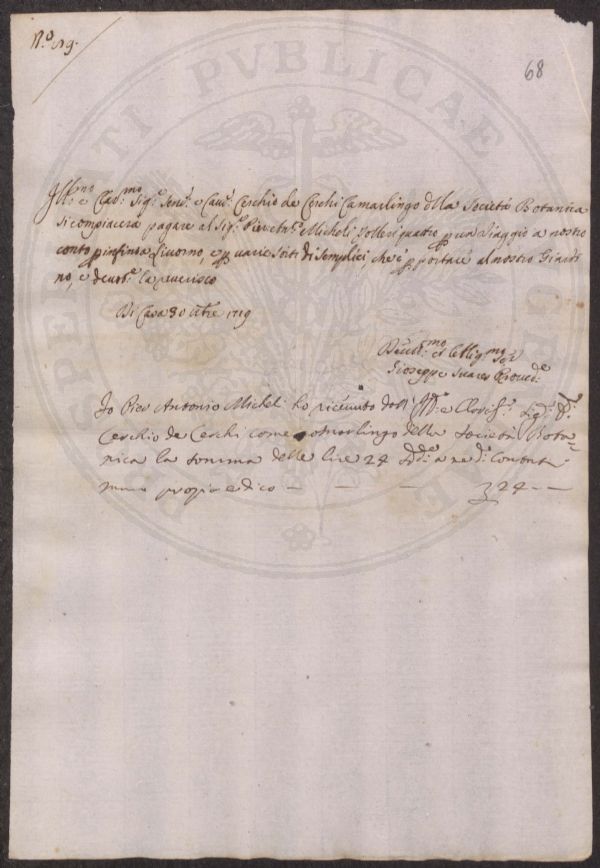 N.o 19.
68
Ill.mo e Clar.mo Sig.e Sen.e e Cav.e Cerchio de Cerchi Camarlingo della Società Botanica
si compiacerà pagare al Sig.e Pier Ant.o Micheli lire venti quattro p un Viaggio a nostro
conto p infino a Livorno, e p varie Siti di Semplici, che è p portare al nostro Giardi
no, e devot.e la reverisco
Di Casa 30 1719
Devot.mo et Obblig.mo Ser.e
Gioseppe Suares Proved.e
Io Pier Antonio Micheli ho ricevuto dall Ill.e e Clariss.o Sig.e
Cerchio de Cerchi come Camarlingo della Società Bota-
nica la somma delle lire 24 contanti
mano propia e dico — — — 24 —
PUBLICAE